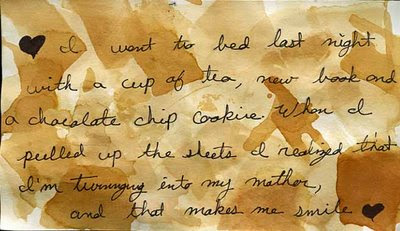 I went to bed last night
with a cup of tea, new book and
a chocolate chip cookie. When I
pulled up the sheets I realized that
I'm turning into my mother,
and that makes me smile